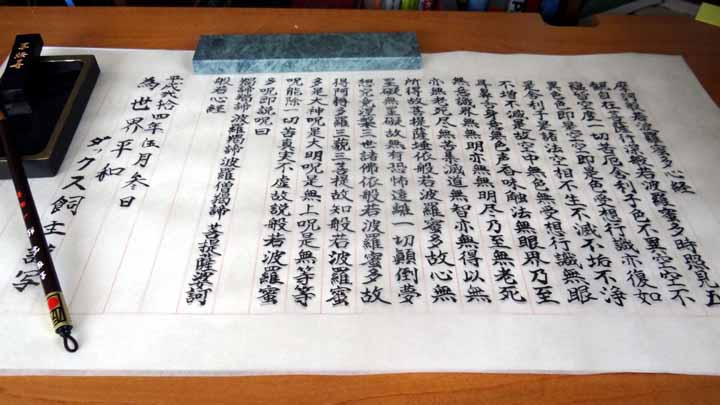 摩訶般若波羅蜜多心経
観自在菩薩行深般若波羅蜜多時照見五
蘊皆空度一切苦厄舎利子色不異空空不
異色色即是空空即是色受想行識亦復如
是舎利子是諸法空相不生不滅不垢不浄
不増不減是故空中無色無受想行識無眼
耳鼻舌身意無色声香味触法無眼界乃至
無意識界無無明亦無無明尽乃至無老死
亦無老死尽無苦集滅道無智亦無得以無
所得故菩提薩埵依般若波羅蜜多故心無
罣礙無罣礙故無有恐怖遠離一切顛倒夢
想究竟涅槃三世諸佛依般若波羅蜜多故
得阿耨多羅三藐三菩提故知般若波羅蜜
多是大神呪是大明呪是無上呪是無等等
呪能除一切苦真実不虚故説般若波羅蜜
多呪即説呪曰
羯諦羯諦 波羅羯諦 波羅僧羯諦 菩提薩婆訶
般若心経
平成弐拾四年伍月参日
為世界平和
ダックス飼主